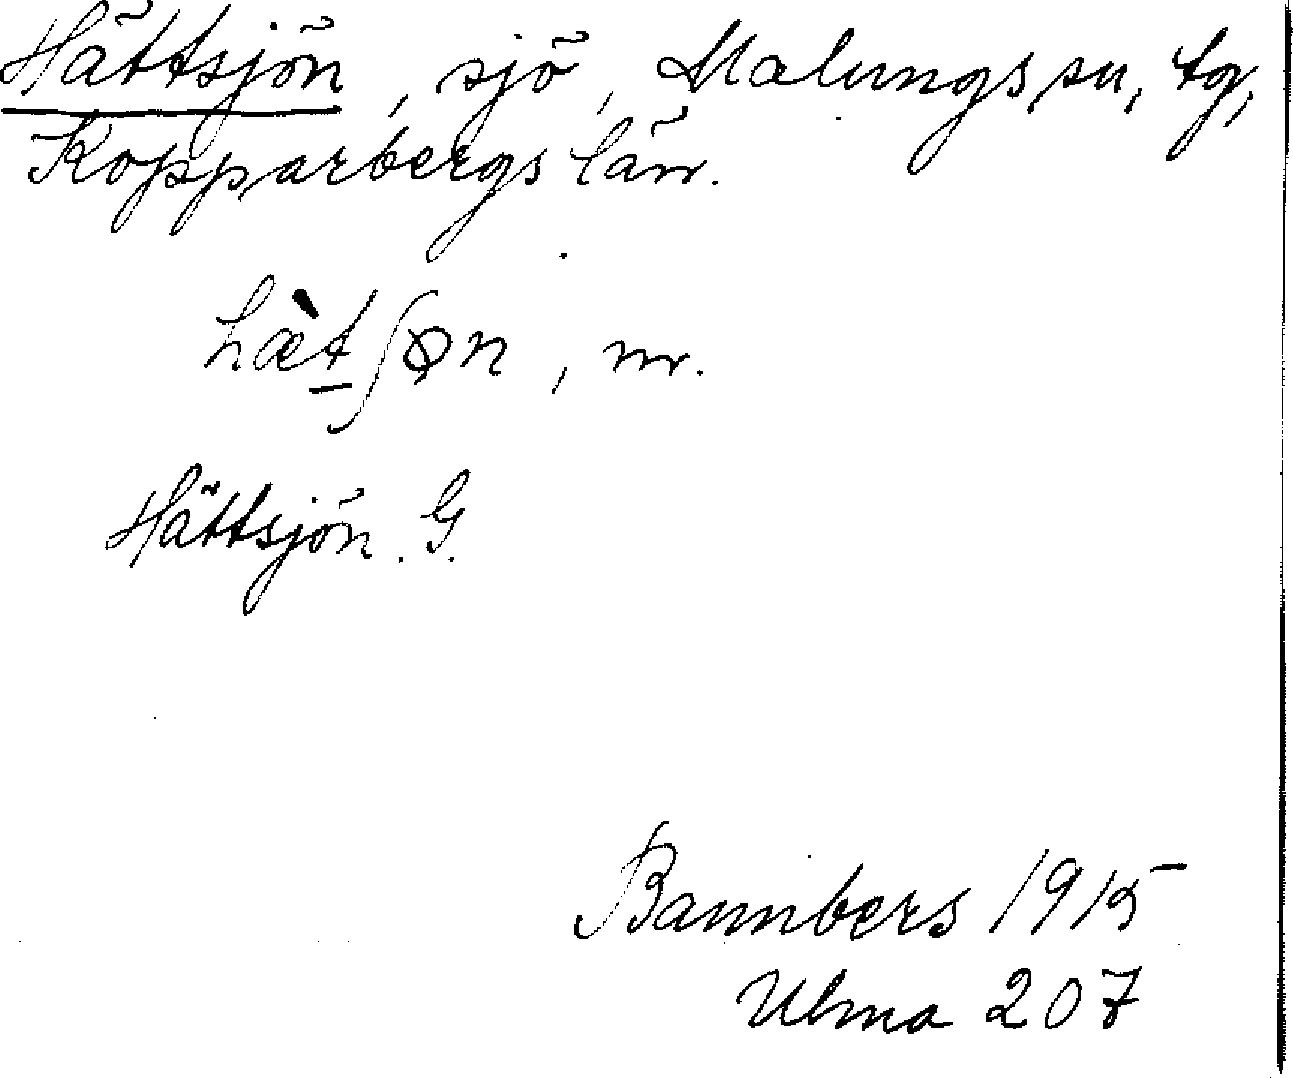 Hättsjön, sjö, Malungs sn, tg,
Kopparbergs län.
hæ̀t̲ʃøn, m.
Hättsjön. G.
Bannbers 1915
Ulma 207